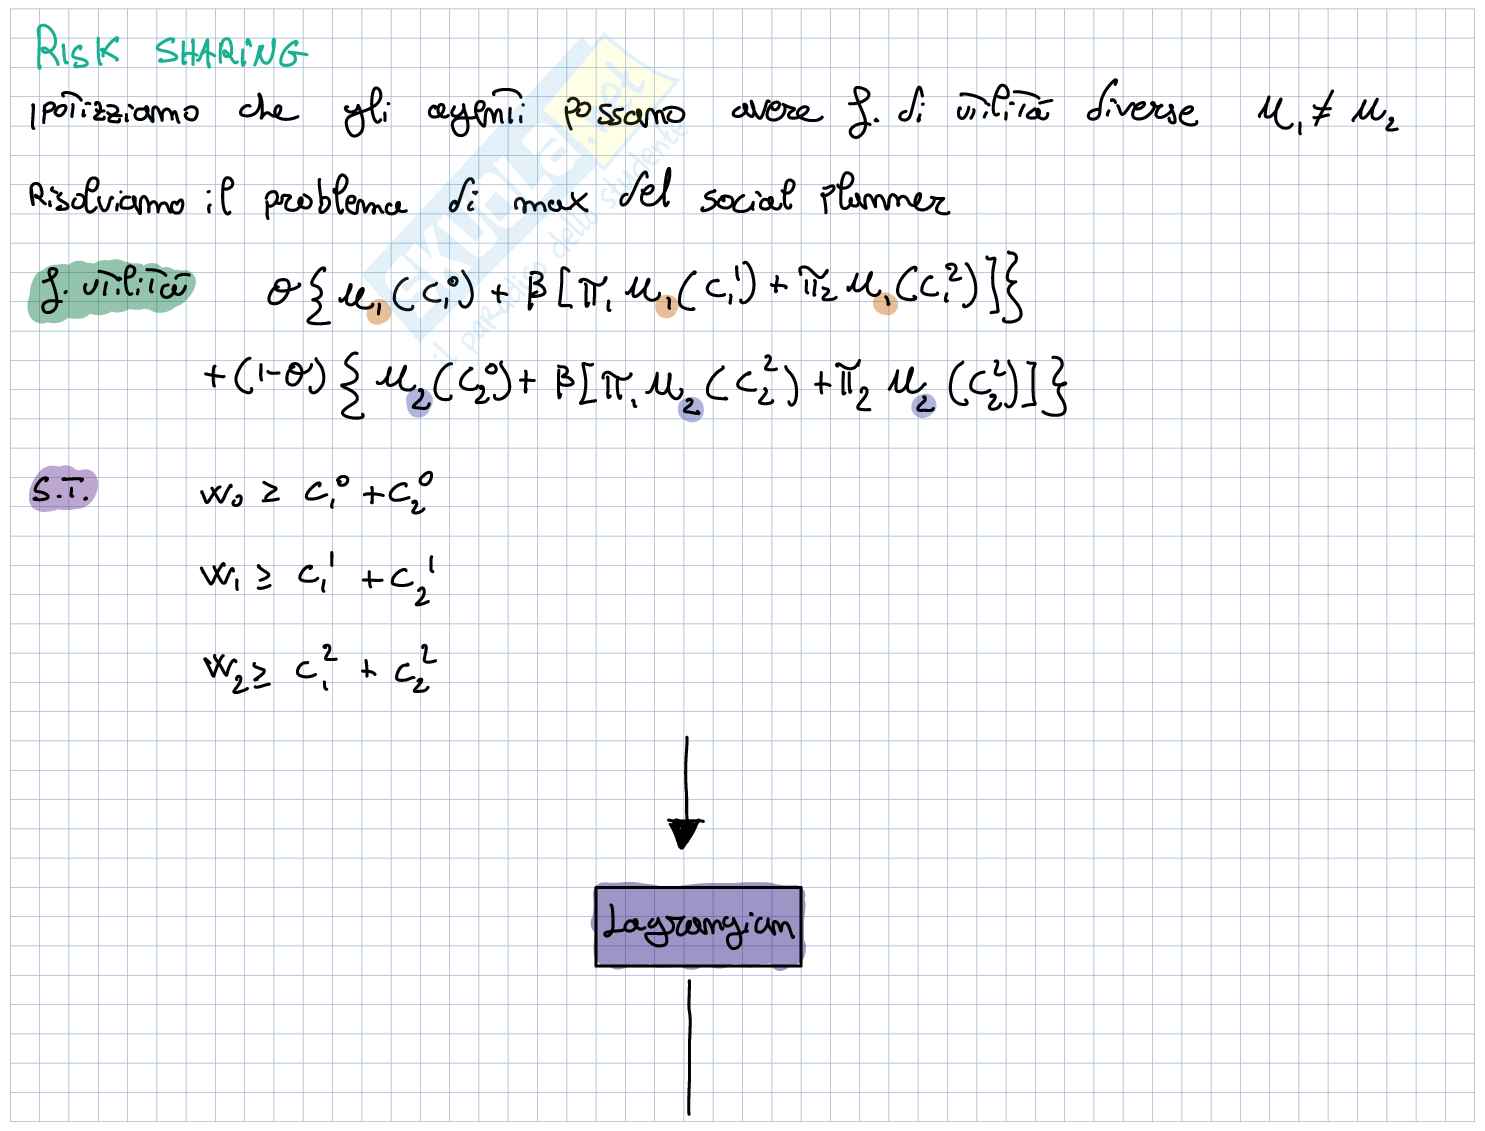 RISK SHARING
Ipotizziamo che gli agenti possano avere f. di utilità diverse u₁ ≠ u₂
Risolviamo il problema di max del social planner
f. utilità θ{u₁(c₁⁰) + β[π₁ u₁(c₁¹) + π₂ u₁(c₁²)]}
+ (1-θ){u₂(c₂⁰) + β[π₁ u₂(c₂²) + π₂ u₂(c₂²)]}
S.T. w₀ ≥ c₁⁰ + c₂⁰
w₁ ≥ c₁¹ + c₂¹
w₂ ≥ c₁² + c₂²
Lagrangian
SKUOLA.net
il paradiso dello studente